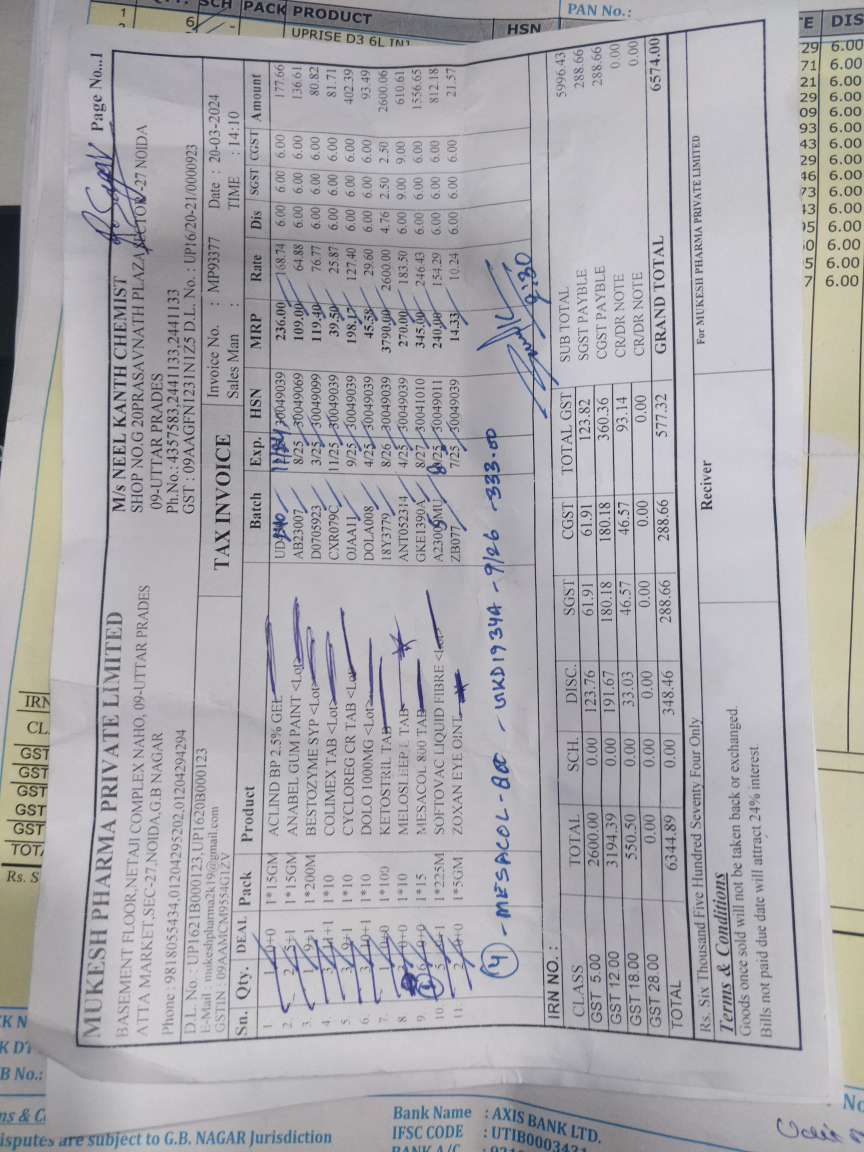 MUKESH PHARMA PRIVATE LIMITED
BASEMENT FLOOR,NETAJI COMPLEX NAHO, 09-UTTAR PRADES
ATTA MARKET,SEC-27,NOIDA,G.B NAGAR
Phone : 9818055434,01204295202,01204294294
D.L. No. : UP1621B000123,UP1620B000123
E-Mail : mukeshpharma2k19@gmail.com
GSTIN : 09AAMCM9554G1ZV
Page No...1
M/s NEEL KANTH CHEMIST
SHOP NO.G 20PRASAVNATH PLAZA,SECTOR-27 NOIDA
09-UTTAR PRADES
Ph.No.: 4357583,2441133,2441133
GST : 09AAGFN1231N1Z5 D.L. No. : UP16/20-21/0000923
TAX INVOICE
Invoice No. : MP93377 Date : 20-03-2024
Sales Man : TIME : 14:10
Sn. Qty. DEAL Pack Product Batch Exp. HSN MRP Rate Dis SGST CGST Amount
1. 1*15GM ACLIND BP 2.5% GEL 30049039 236.00 168.74 6.00 6.00 6.00 177.66
2. 1*15GM ANABEL GUM PAINT <Lot> AB23007 8/25 30049069 109.00 64.88 6.00 6.00 6.00 136.61
3. 1*200M BESTOZYME SYP <Lot> D0705923 3/25 30049099 119.40 76.77 6.00 6.00 6.00 80.82
4. 1*10 COLIMEX TAB <Lot> CXR079C 11/25 30049039 39.50 25.87 6.00 6.00 6.00 81.71
5. 1*10 CYCLOREG CR TAB <Lot> OJAA11 9/25 30049039 198.17 127.40 6.00 6.00 6.00 402.39
6. 1*10 DOLO 1000MG <Lot> DOLA008 4/25 30049039 45.58 29.60 6.00 6.00 6.00 93.49
7. 1*100 KETOSTRIL TAB 18Y3779 8/26 30049039 3790.00 2600.00 4.76 2.50 2.50 2600.06
8. 1*10 TAB ANT052314 4/25 30049039 270.00 183.50 6.00 9.00 9.00 610.61
9. 1*15 MESACOL 800 TAB GKE1390A 8/27 30041010 345.00 246.43 6.00 6.00 6.00 1556.65
10. 1*225M SOFTOVAC LIQUID FIBRE <Lot> 30049011 240.00 154.29 6.00 6.00 6.00 812.18
11. 1*5GM ZOXAN EYE OINT. ZB077 7/25 30049039 14.33 10.24 6.00 6.00 6.00 21.57
9:30
IRN NO. :
CLASS TOTAL SCH. DISC. SGST CGST TOTAL GST
GST 5.00 2600.00 0.00 123.76 61.91 61.91 123.82
GST 12.00 3194.39 0.00 191.67 180.18 180.18 360.36
GST 18.00 550.50 0.00 33.03 46.57 46.57 93.14
GST 28.00 0.00 0.00 0.00 0.00 0.00 0.00
TOTAL 6344.89 0.00 348.46 288.66 288.66 577.32
SUB TOTAL 5996.43
SGST PAYBLE 288.66
CGST PAYBLE 288.66
CR/DR NOTE 0.00
CR/DR NOTE 0.00
GRAND TOTAL 6574.00
Rs. Six Thousand Five Hundred Seventy Four Only
Terms & Conditions
Goods once sold will not be taken back or exchanged.
Bills not paid due date will attract 24% interest.
Reciver
For MUKESH PHARMA PRIVATE LIMITED
SCH PACK PRODUCT
HSN
PAN No.:
DIS
1 6 UPRISE D3 6L
29 6.00
71 6.00
21 6.00
29 6.00
09 6.00
93 6.00
43 6.00
29 6.00
46 6.00
73 6.00
6.00
6.00
6.00
6.00
6.00
IRN
CL
GST
GST
GST
GST
GST
Rs. S
B No.:
isputes are subject to G.B. NAGAR Jurisdiction
Bank Name : AXIS BANK LTD.
IFSC CODE : UTIB0003421